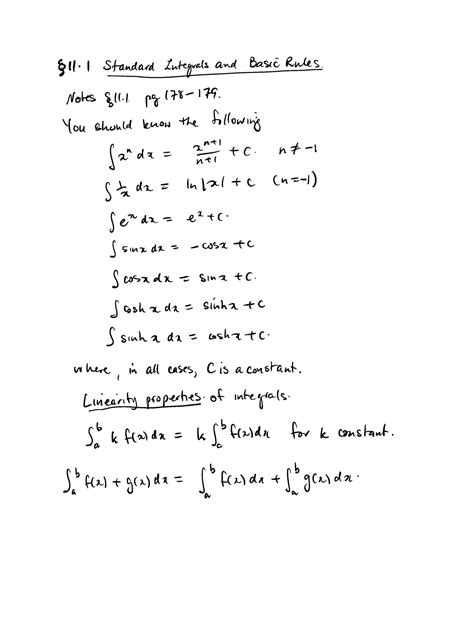 §11.1 Standard Integrals and Basic Rules
Notes §11.1 pg 178-179.
You should know the following
∫ xⁿ dx = xⁿ⁺¹/n+1 + C. n ≠ -1
∫ 1/x dx = ln|x| + C (n=-1)
∫ eˣ dx = eˣ + C.
∫ sinx dx = -cosx + C
∫ cosx dx = sinx + C.
∫ cosh x dx = sinhx + C
∫ sinh x dx = coshx + C.
where, in all cases, C is a constant.
Linearity properties of integrals.
∫ₐᵇ k f(x) dx = k ∫ₐᵇ f(x) dx for k constant.
∫ₐᵇ f(x) + g(x) dx = ∫ₐᵇ f(x) dx + ∫ₐᵇ g(x) dx.